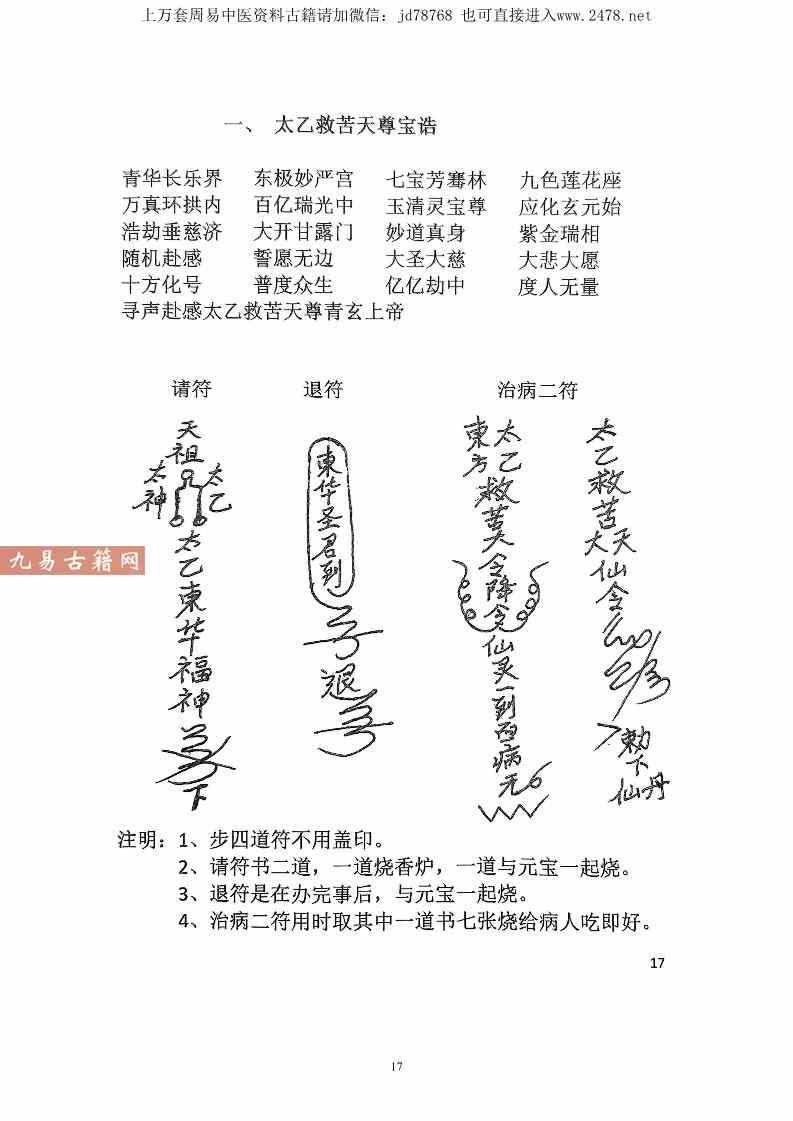 上万套周易中医资料古籍请加微信：jd78768 也可直接进入www.2478.net
一、 太乙救苦天尊宝诰
青华长乐界 东极妙严宫 七宝芳骞林 九色莲花座
万真环拱内 百亿瑞光中 玉清灵宝尊 应化玄元始
浩劫垂慈济 大开甘露门 妙道真身 紫金瑞相
随机赴感 誓愿无边 大圣大慈 大悲大愿
十方化号 普度众生 亿亿劫中 度人无量
寻声赴感太乙救苦天尊青玄上帝
请符 退符 治病二符
天祖
太神
太乙
太乙東华福神
下
東华圣君到
退
東方
太乙
救苦天令降令仙灵一到百病无
太乙救苦
大天
仙令
勅下
仙丹
九易古籍网
注明：1、步四道符不用盖印。
2、请符书二道，一道烧香炉，一道与元宝一起烧。
3、退符是在办完事后，与元宝一起烧。
4、治病二符用时取其中一道书七张烧给病人吃即好。
17
17